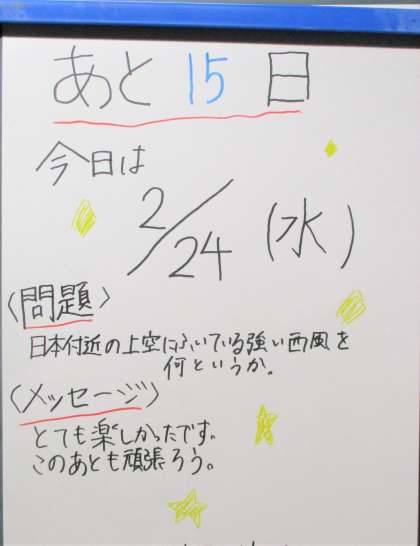 あと15日
今日は
2/24(水)
〈問題〉
日本付近の上空にふいている強い西風を
何というか。
〈メッセージ〉
とても楽しかったです。
このあとも頑張ろう。